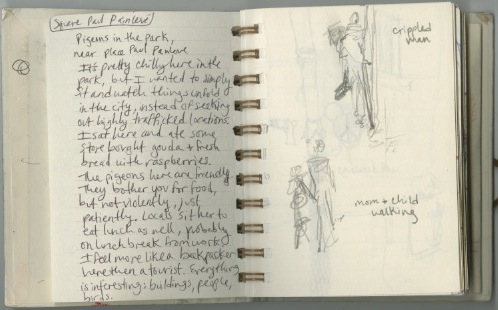 Square Paul Painlevé
Pigeons in the park,
near place Paul Painleve.
It's pretty chilly here in the
park, but I wanted to simply
sit and watch things unfold
in the city, instead of seeking
out highly trafficked locations.
I sat here and ate some
store bought gouda + fresh
bread with raspberries.
The pigeons here are friendly
They bother you for food,
but not violently, just
patiently. Locals sit here to
eat lunch as well, probably
on lunch break from work.
I feel more like a backpacker
here then a tourist. Everything
is interesting: buildings, people,
birds.
crippled
man
mom + child
walking